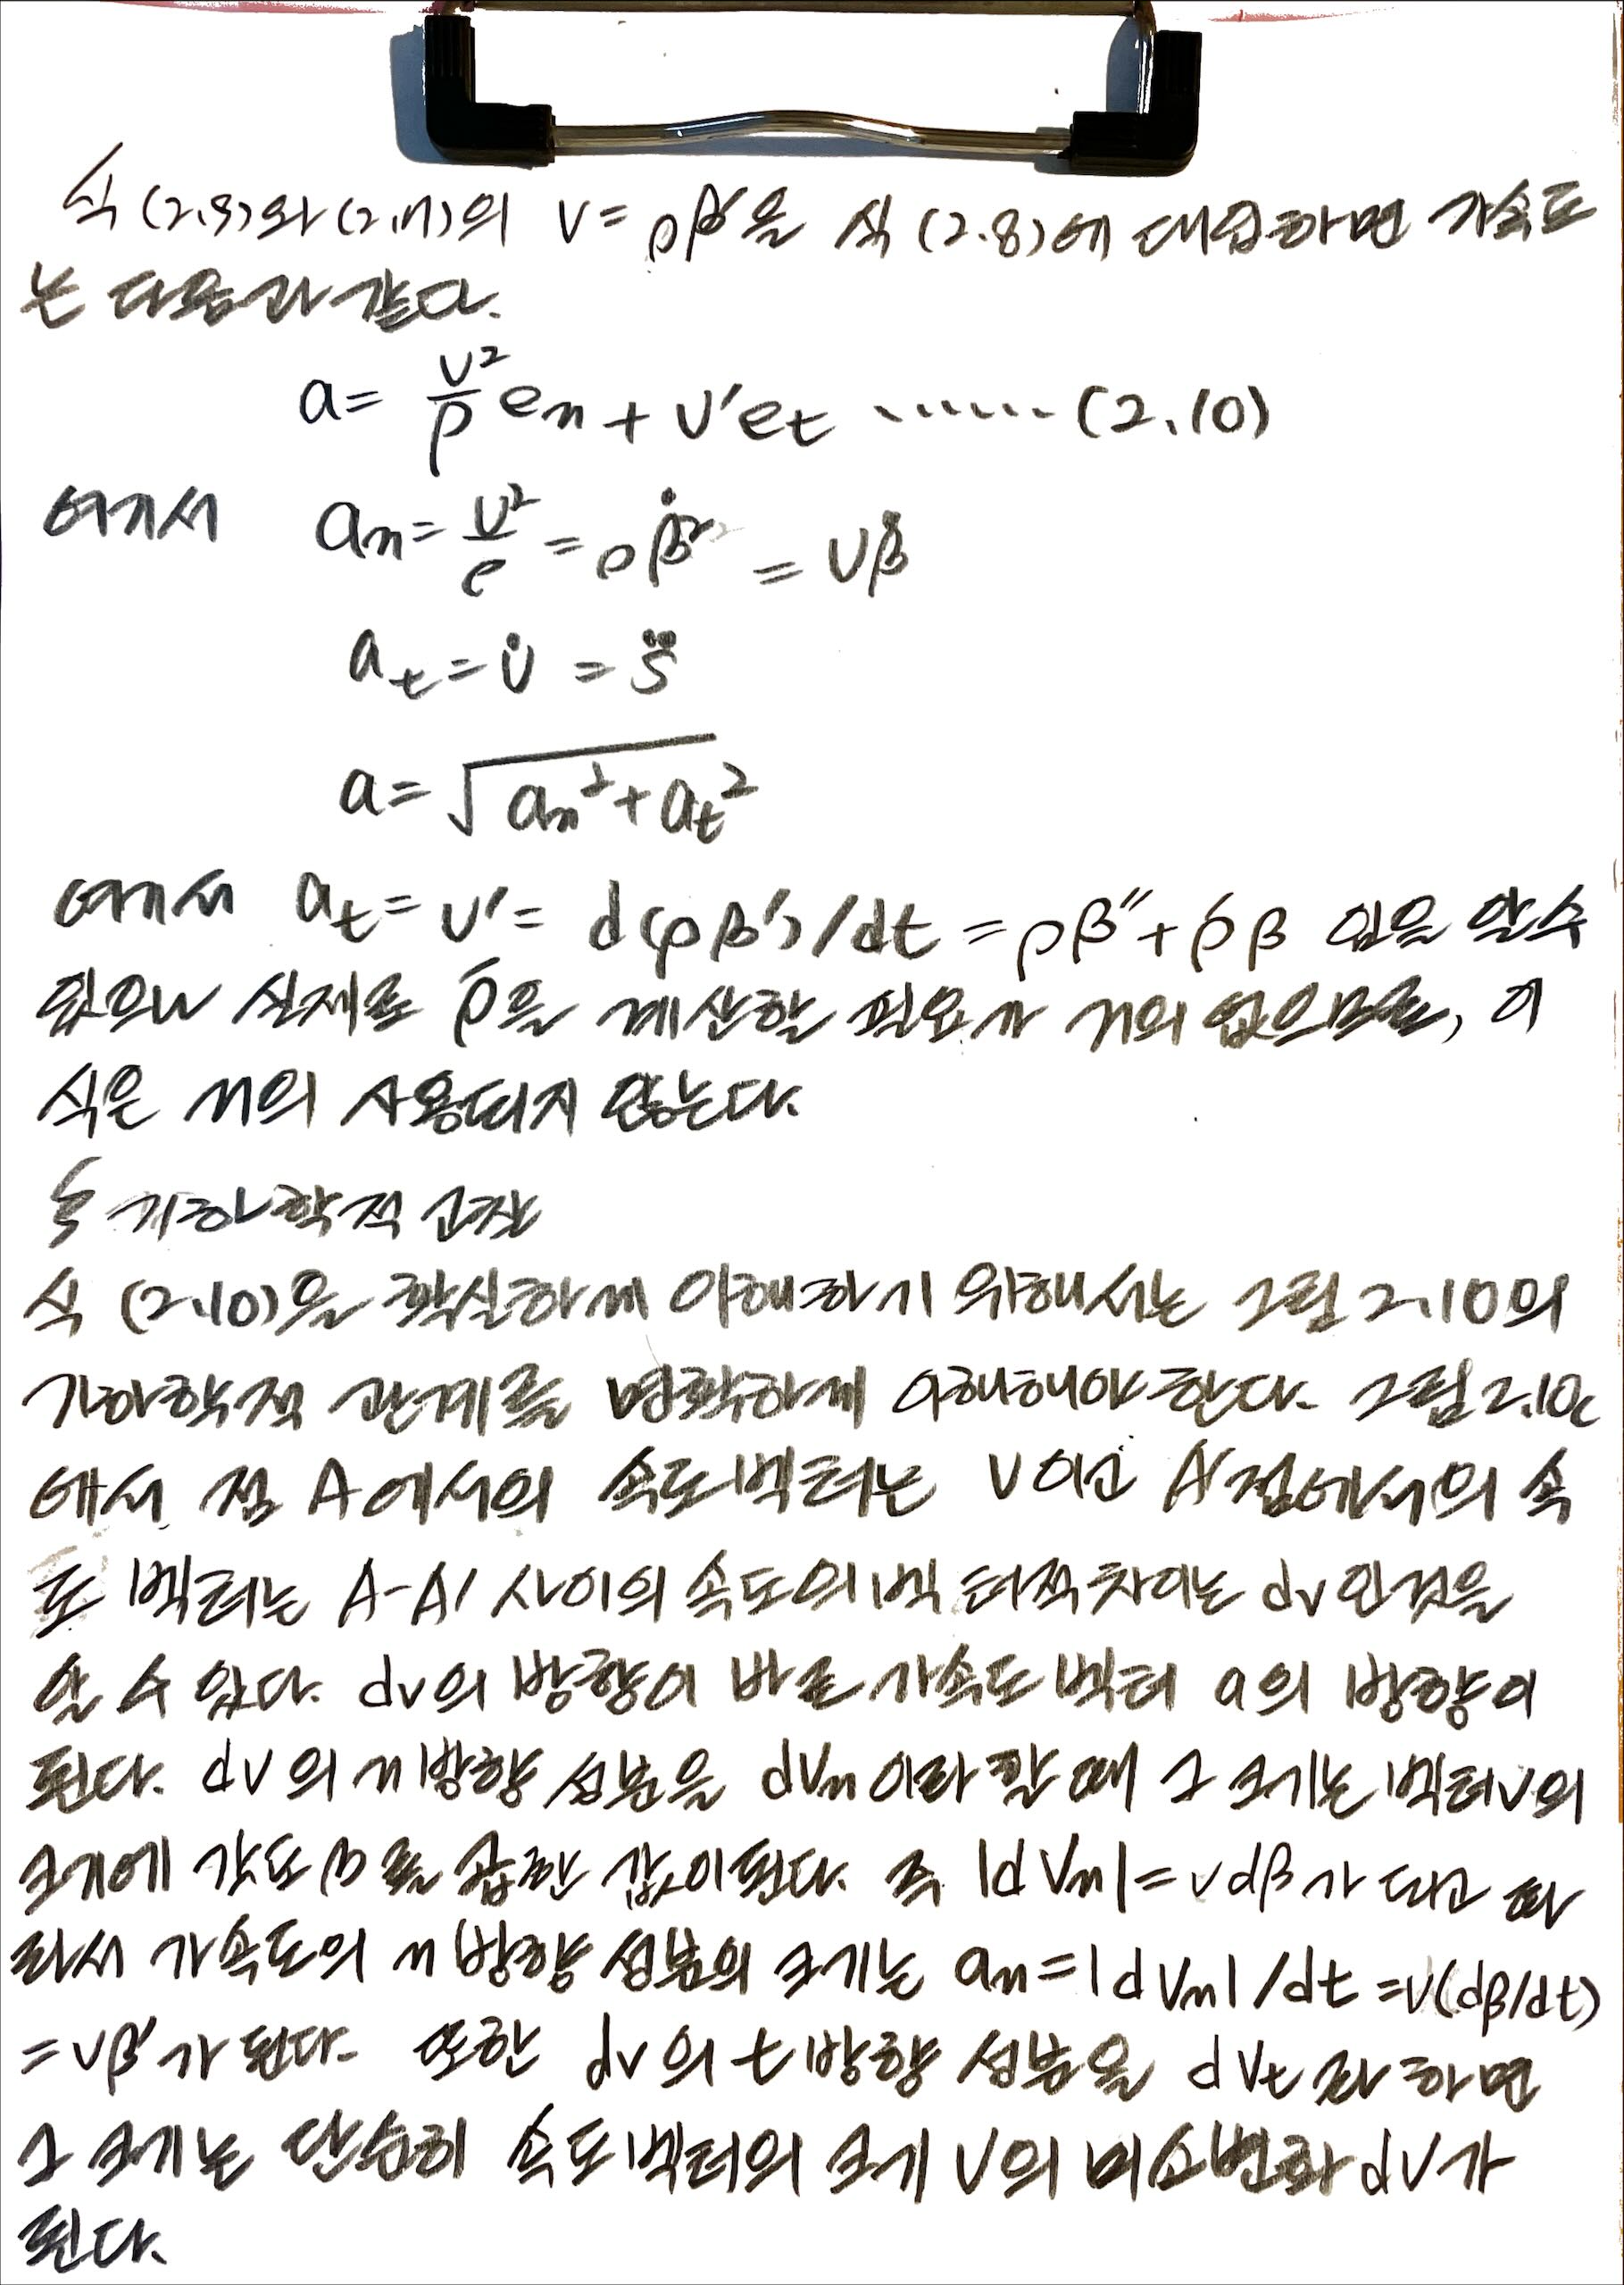 식 (2.9)와 (2.11)의 v = ρβ'을 식 (2.8)에 대입하면 가속도
는 다음과 같다.
a = v²/ρ eₙ + v'eₜ ...... (2.10)
여기서 aₙ = v²/ρ = ρβ̇² = vβ̇
aₜ = v̇ = s̈
a = √(aₙ² + aₜ²)
여기서 aₜ = v' = d(ρβ')/dt = ρβ'' + ρ́β 임을 알수
있으나 실제로 ρ́을 계산할 필요가 거의 없으므로, 이
식은 거의 사용되지 않는다.
§ 기하학적 고찰
식 (2.10)을 확실하게 이해하기 위해서는 그림 2.10의
기하학적 관계를 명확하게 이해해야 한다. 그림 2.10c
에서 점 A에서의 속도벡터는 v이고 A'점에서의 속
도 벡터는 A-A' 사이의 속도의 벡터적 차이는 dv인것을
알 수 있다. dv의 방향이 바로 가속도 벡터 a의 방향이
된다. dv의 n방향 성분을 dvₙ이라 할 때 그 크기는 벡터v의
크기에 각도 β를 곱한 값이된다. 즉 |dvₙ| = vdβ가 되고 따
라서 가속도의 n방향 성분의 크기는 aₙ = |dvₙ|/dt = v(dβ/dt)
= vβ'가 된다. 또한 dv의 t방향 성분을 dvₜ라 하면
그 크기는 단순히 속도벡터의 크기 v의 미소변화 dv가
된다.